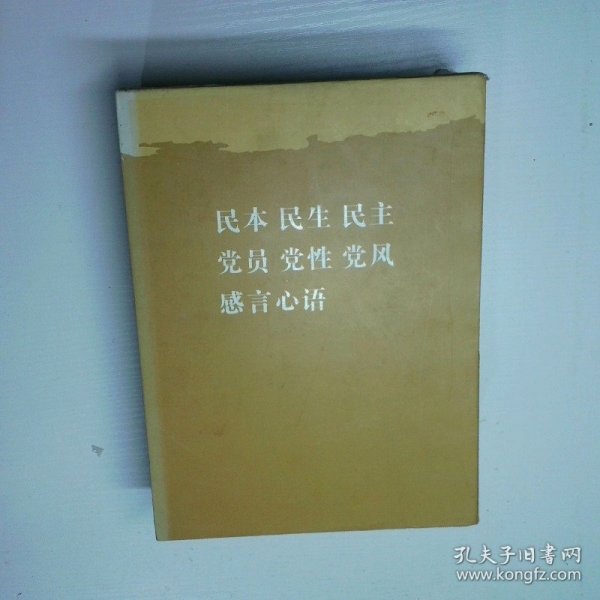 民本 民生 民主
党员 党性 党风
感言心语
孔夫子旧书网
www.kongfz.com